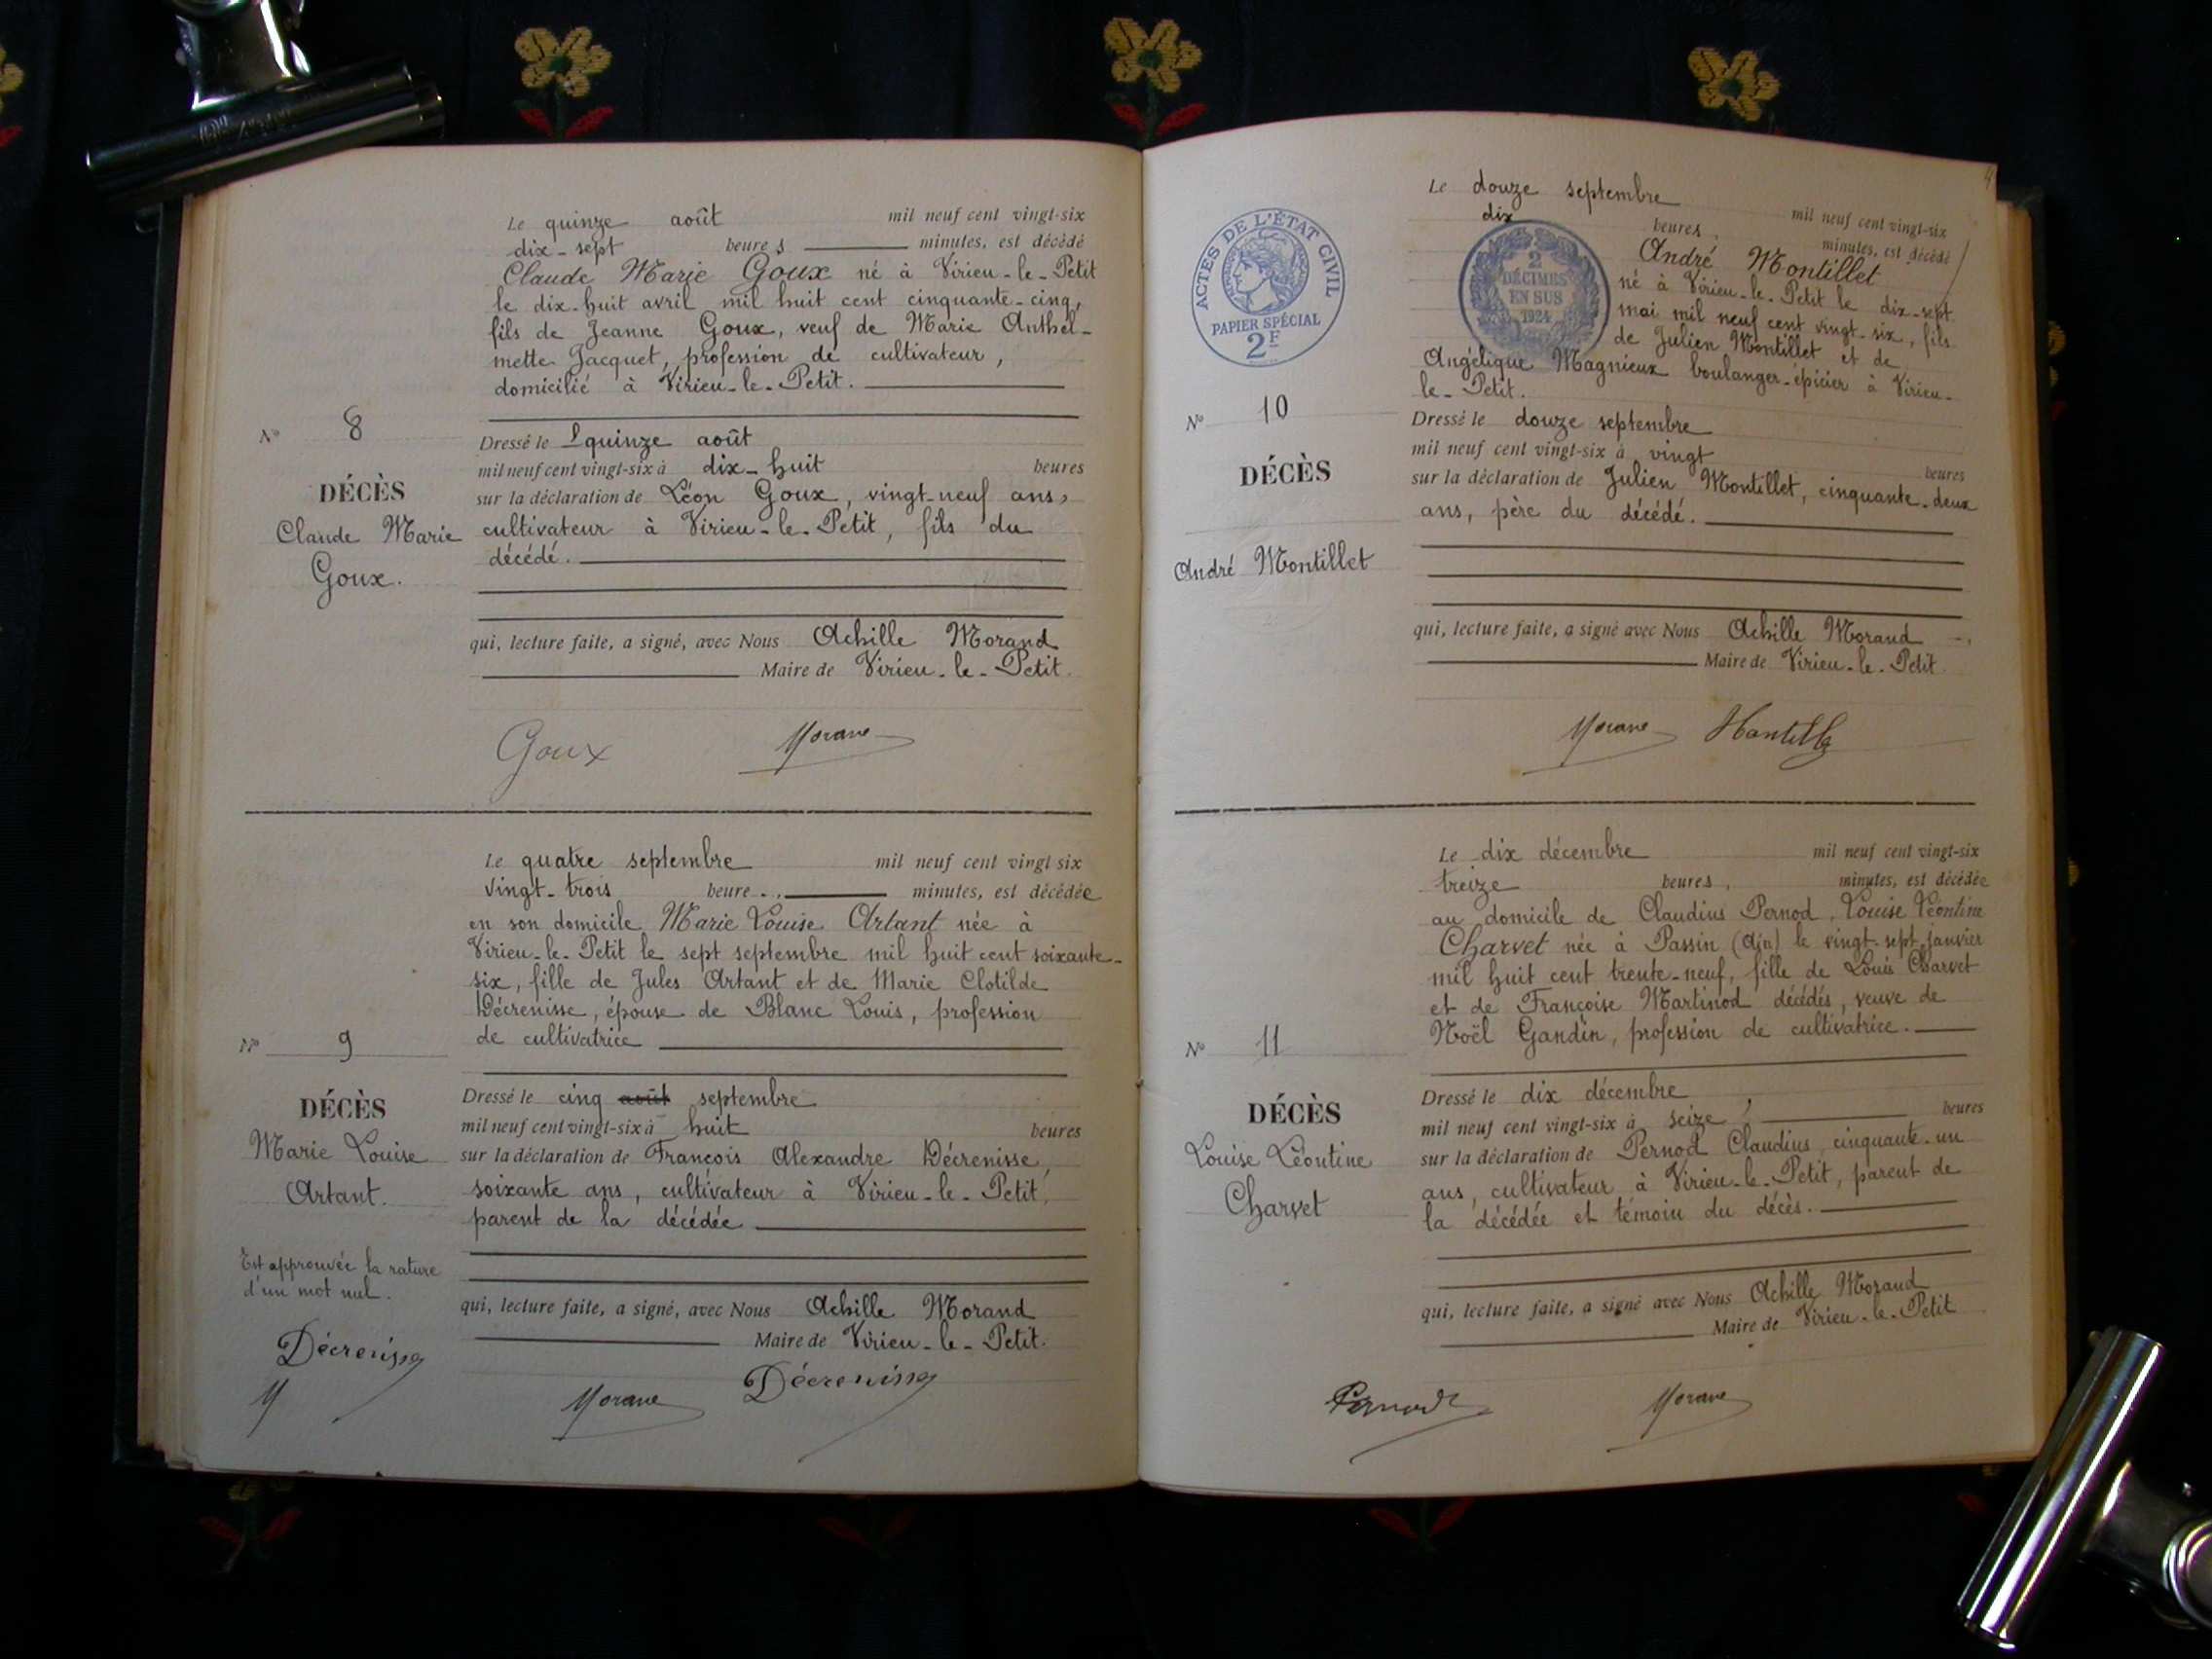 Le quinze août mil neuf cent vingt-six
dix-sept heures minutes, est décédé
Claude Marie Goux né à Virieu-le-Petit
le dix-huit avril mil huit cent cinquante-cinq,
fils de Jeanne Goux, veuf de Marie Anthel-
mette Jacquet, profession de cultivateur,
domicilié à Virieu-le-Petit.
N° 8
DÉCÈS
Claude Marie
Goux.
Dressé le quinze août
mil neuf cent vingt-six à dix-huit heures
sur la déclaration de Léon Goux, vingt-neuf ans,
cultivateur à Virieu-le-Petit, fils du
décédé.
qui, lecture faite, a signé, avec Nous Achille Morand
Maire de Virieu-le-Petit.
Goux Morand
Le quatre septembre mil neuf cent vingt six
vingt-trois heure minutes, est décédée
en son domicile Marie Louise Artant née à
Virieu-le-Petit le sept septembre mil huit cent soixante-
six, fille de Jules Artant et de Marie Clotilde
Décrenisse, épouse de Blanc Louis, profession
de cultivatrice
N° 9
DÉCÈS
Marie Louise
Artant.
Est approuvée la rature
d'un mot nul.
Décrenisse
M
Dressé le cinq août septembre
mil neuf cent vingt-six à huit heures
sur la déclaration de François Alexandre Décrenisse,
soixante ans, cultivateur à Virieu-le-Petit,
parent de la décédée
qui, lecture faite, a signé, avec Nous Achille Morand
Maire de Virieu-le-Petit.
Morand Décrenisse
4
ACTES DE L'ÉTAT CIVIL
PAPIER SPÉCIAL
2F
2
DÉCIMES
EN SUS
1924
Le douze septembre mil neuf cent vingt-six
dix heures, minutes, est décédé
André Montillet
né à Virieu-le-Petit le dix-sept
mai mil neuf cent vingt-six, fils
de Julien Montillet et de
Angélique Magnieux boulanger-épicier à Virieu-
le-Petit.
N° 10
DÉCÈS
André Montillet
Dressé le douze septembre
mil neuf cent vingt-six à vingt heures
sur la déclaration de Julien Montillet, cinquante-deux
ans, père du décédé.
qui, lecture faite, a signé avec Nous Achille Morand
Maire de Virieu-le-Petit.
Morand Montillet
Le dix décembre mil neuf cent vingt-six
treize heures, minutes, est décédée
au domicile de Claudius Pernod, Louise Léontine
Charvet née à Passin (Ain) le vingt-sept janvier
mil huit cent trente-neuf, fille de Louis Charvet
et de Françoise Martinod décédés, veuve de
Noël Gandin, profession de cultivatrice.
N° 11
DÉCÈS
Louise Léontine
Charvet
Dressé le dix décembre
mil neuf cent vingt-six à seize, heures
sur la déclaration de Pernod Claudius, cinquante-un
ans, cultivateur à Virieu-le-Petit, parent de
la décédée et témoin du décès.
qui, lecture faite, a signé avec Nous Achille Morand
Maire de Virieu-le-Petit
Pernod Morand